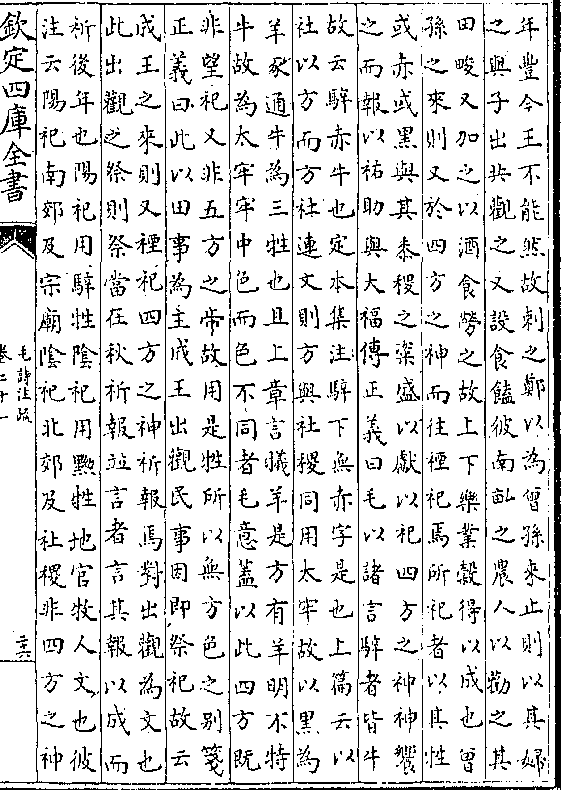 年豐今王不能然故刺之鄭以為曾孫來止則以其婦
之與子出共觀之又設食饁彼南畝之農人以勸之其
田畯又加之以酒食勞之故上下樂業穀得以成也曾
孫之來則又於四方之神而往禋祀焉所祀者以其牲
或赤或黑與其黍稷之粢盛以獻以祀四方之神神饗
之而報以祐助與大福傳正義曰毛以諸言騂者皆牛
故云騂赤牛也定本集注騂下無赤字是也上篇云以
社以方而方社連文則方與社稷同用太牢故以黑為
羊豕通牛為三牲也且上章言犧羊是方有羊明不特
牛故為太牢牢中色而色不同者毛意蓋以此四方既
非望祀又非五方之帝故用是牲所以無方色之別箋
正義曰此以田事為主成王出觀民事因即祭祀故云
成王之來則又禋祀四方之神祈報焉對出觀為文也
此出觀之祭則祭當在秋祈報並言者言其報以成而
祈後年也陽祀用騂牲陰祀用黝牲地官牧人文也彼
注云陽祀南郊及宗廟陰祀北郊及社稷非四方之神
欽定四庫全書
毛詩注疏
卷二十一
二六